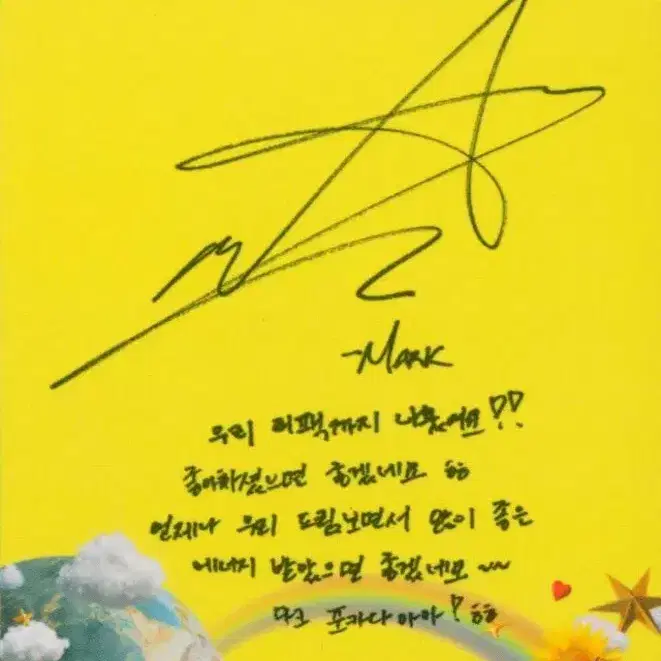 -MARK
우리 리팩까지 나왔어요!!
좋아하셨으면 좋겠네요 ㅎㅎ
언제나 우리 드림보면서 많이 좋은
에너지 받았으면 좋겠네요 ~~
마크 포카다아아! ㅎㅎ